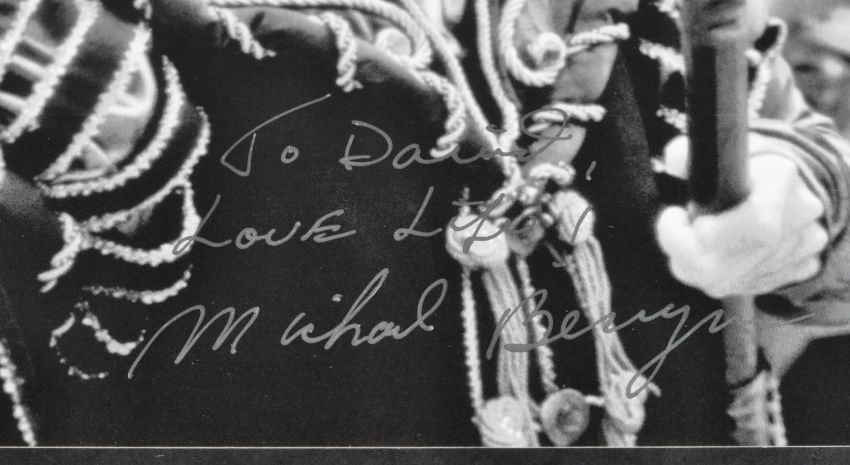 To David,
LOVE LIFE!
Michael Berryman